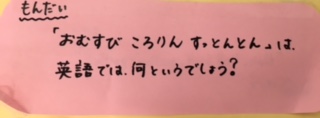 もんだい
「おむすび ころりん すっとんとん」は、
英語では、何というでしょう?